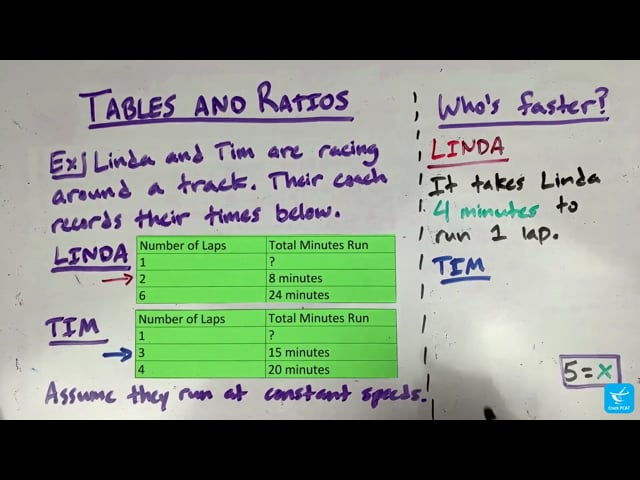 TABLES AND RATIOS
Ex) Linda and Tim are racing
around a track. Their coach
records their times below.
LINDA
Number of Laps Total Minutes Run
1 ?
2 8 minutes
6 24 minutes
TIM
Number of Laps Total Minutes Run
1 ?
3 15 minutes
4 20 minutes
Assume they run at constant speeds.
Who's faster?
LINDA
It takes Linda
4 minutes to
run 1 lap.
TIM
5=x
Crack PCAT